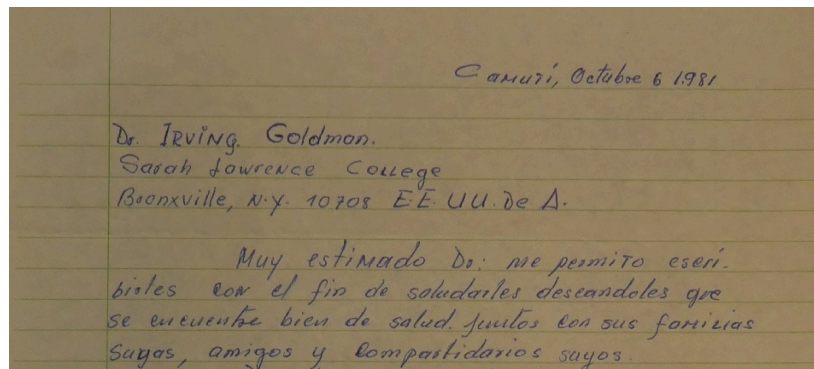 Camurí, Octubre 6 1.981
Dr. IRVING. Goldman.
Sarah Lawrence College
Bronxville, N.Y. 10708 E.E. U.U. De A.
Muy estimado Dr: me permito escri-
birles con el fin de saludarles deseandoles que
se encuentre bien de salud. Juntos con sus familias
suyas, amigos y compartidarios suyos.